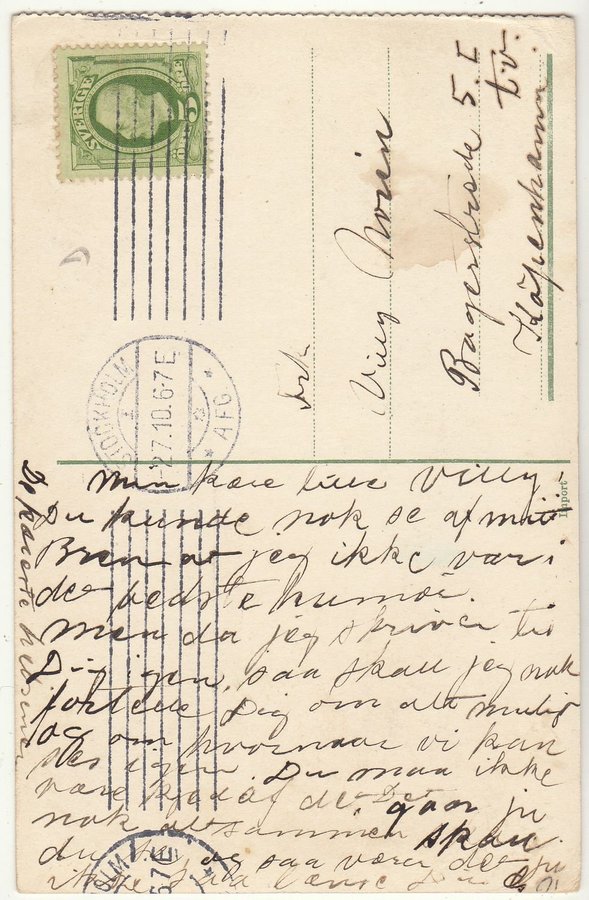 SVERIGE
5
ÖRE
STOCKHOLM 1
2.7.10.6-7 E
AFG
Frk
Villy Norin
Bagerstræde 5. I
tv.
København
Import
Min kære lille Villy!
Du kunde nok se af mit
Brev at jeg ikke var i
det bedste humør.
men da jeg skriver til
Dig igen, saa skall jeg nok
fortelle Dig om alt muligt
og om hvornaar vi kan
ses igen. Du maa ikke
være ked af det. Det gaar ju
nok altsammen skall
du se, og saa værer det ju
ikke saa længe
De kæreste hilsner
OLM 1
6-7 E